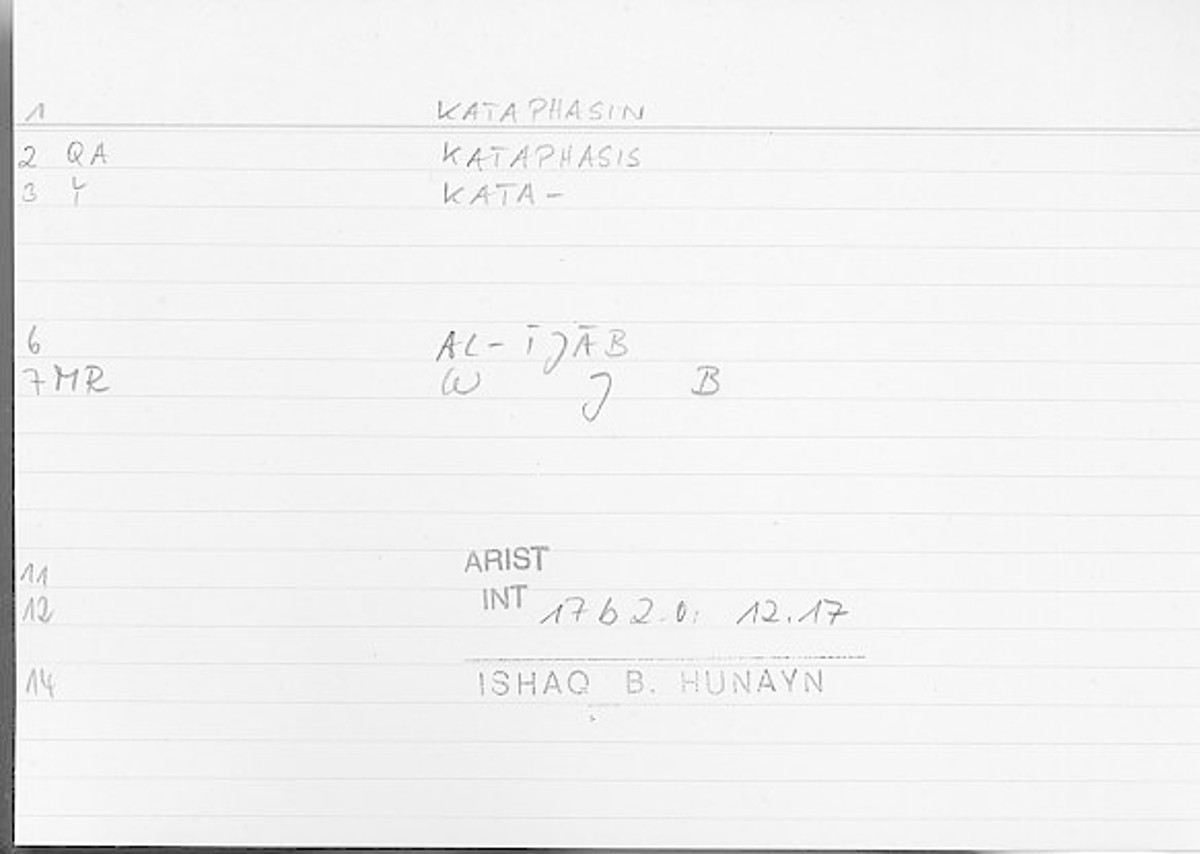 1 KATAPHASIN
2 QA KATAPHASIS
3 KATA-
6 AL-ĪJĀB
7 MR W J B
11 ARIST
12 INT 17b 2.0: 12.17
14 ISHAQ B. HUNAYN